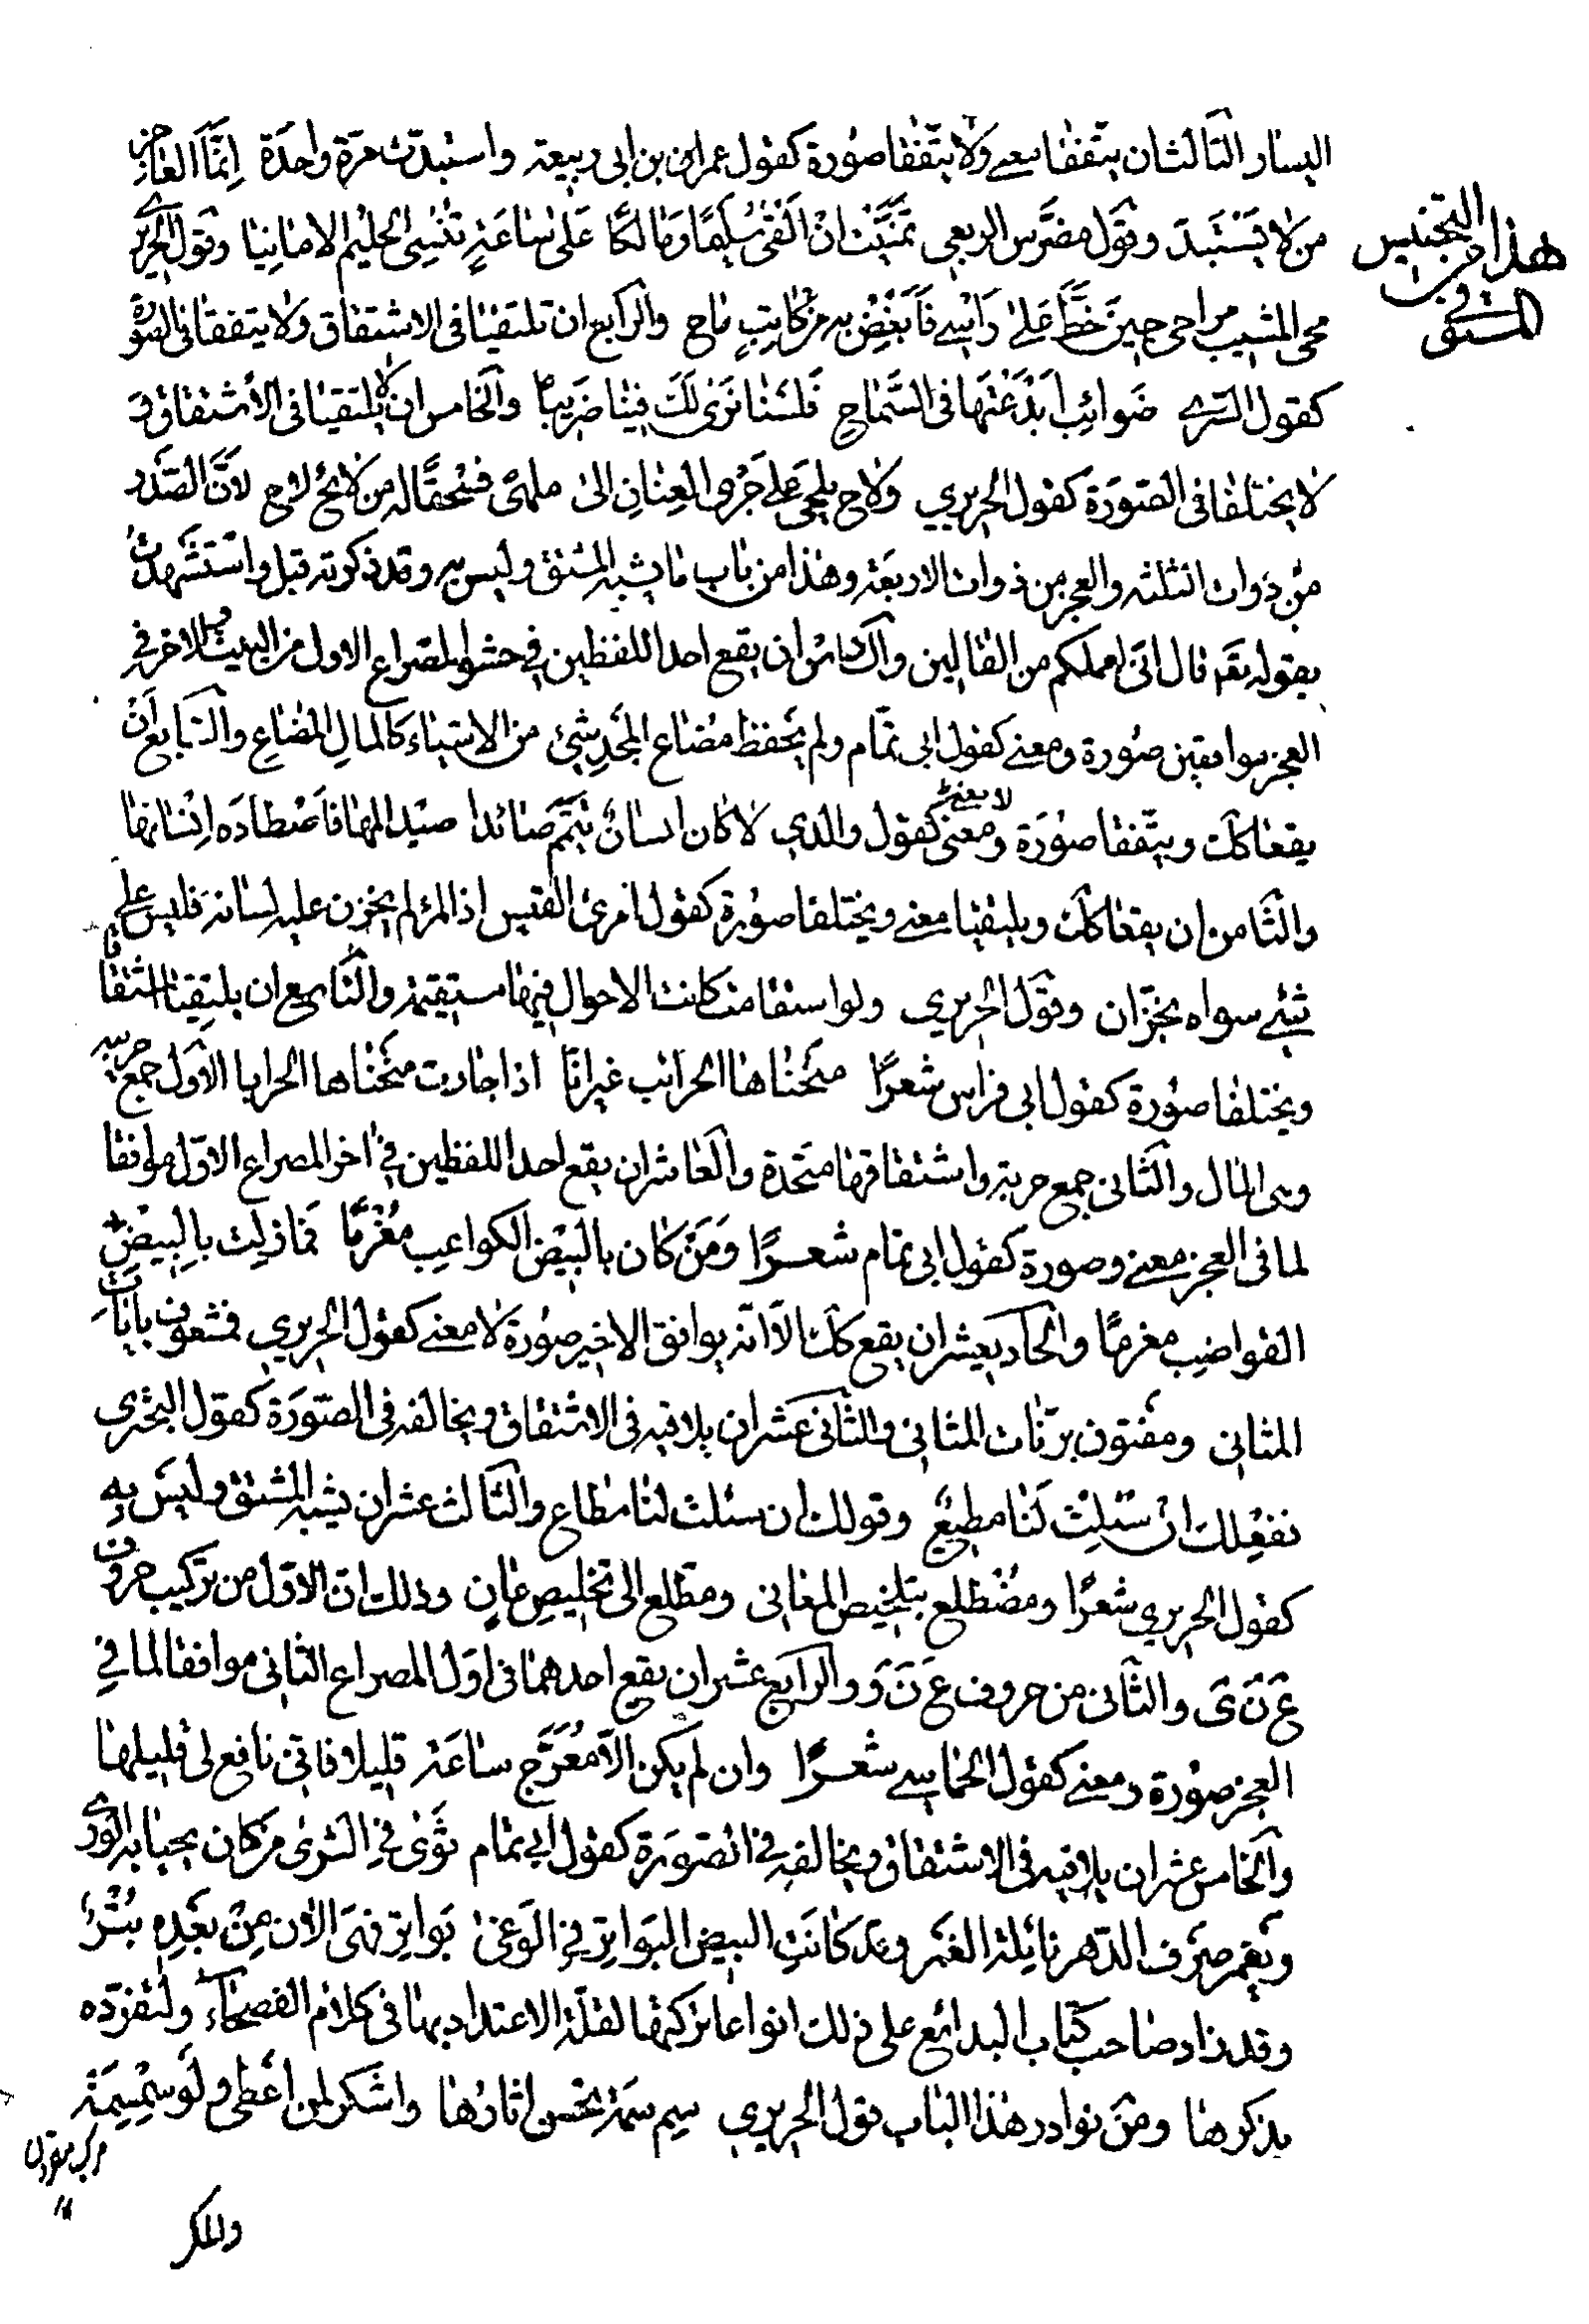 اليسار الثالث ان يتفقا معنى ولا يتفقا صورة كقول عمر بن ابى ربيعة واستبدت مرة واحدة انما العاجز
من لا يستبد وقول مضرس الربعى تمنيت ان القى سليما ومالكا على ساعة تنسى الحليم الامانيا وقول الحريرى
محى المشيب مراحى حين خط على راسى فابغض به من كاتب ماح والرابع ان يلتقيا فى الاشتقاق ولا يتفقا فى الصورة
كقول السرى ضرائب ابدعتها فى السماح فلسنا نرى لك فينا ضريبا والخامس ان لا يلتقيا فى الاشتقاق و
لا يختلفا فى الصورة كقول الحريرى ولاح يلحى على جرى العنان الى ملهى فسحقا له من لائح لاح لان الصدر
من ذوات الثلثة والعجز من ذوات الاربعة وهذا من باب ما يشبه المشتق وليس به وقد ذكرته قبل واستشهدت
بقوله تعم قال انى لعملكم من القالين والسادس ان يقع احد اللفظين فى حشو المصراع الاول من البيت والاخر فى
العجز موافقين صورة ومعنى كقول ابى تمام ولم يحفظ مضاع المجد شئ من الاشياء كالمال المضاع والسابع ان
يقعا كك ويتفقا صورة لا معنى ومعنى كقول والدى لا كان انسان تيمم صائدا صيد المها فاصطاده انسانها
والثامن ان يقعا كك ويلتقيا معنى ويختلفا صورة كقول امرئ القيس اذ المرء لم يخزن عليه لسانه فليس على
شئ سواه بخزان وقول الحريرى ولو استقامت كانت الاحوال فيها مستقيمة والتاسع ان يلتقيا اشتقاقا
ويختلفا صورة كقول ابى فراس شعرا منحناها الحرائب غير انا اذا جارت منحناها الحرابا الاول جمع حريبة
وهى المال والثانى جمع حربة واشتقاقهما متحدة والعاشر ان يقع احد اللفظين فى اخر المصراع الاول موافقا
لما فى العجز معنى وصورة كقول ابى تمام شعرا ومن كان بالبيض الكواعب مغرما فما زلت بالبيض
القواضب مغرما والحاديعشر ان يقع كك الا انه يوافق الاخير صورة لا معنى كقول الحريرى فمشعوف بايات
المثانى ومفتون برنات المثانى والثانى عشر ان يلاقيه فى الاشتقاق ويخالفه فى الصورة كقول البحترى
ففعلك ان سئلت لنا مطيع وقولك ان سئلت لنا مطاع والثالث عشر ان يشبه المشتق وليس به
كقول الحريرى شعرا ومضطلع بتلخيص المعانى ومطلع الى تخليص عان وذلك ان الاول من تركيب حروف
ع ن ى والثانى من حروف ع ن و والرابع عشر ان يقع احدهما فى اول المصراع الثانى موافقا لما فى
العجز صورة ومعنى كقول الحماسى شعرا وان لم يكن الا معرج ساعة قليلا فانى نافع لى قليلها
والخامس عشر ان يلاقيه فى الاشتقاق ويخالفه فى الصورة كقول ابى تمام ثوى فى الثرى من كان يحيا به الورى
ويغمر صرف الدهر نائله الغمر وقد كانت البيض البواتر فى الوغى بواتر فهى الان من بعده بتر
وقد زاد صاحب كتاب البدائع على ذلك انواعا تركتها لقلة الاعتداد بها فى كلام الفصحاء ولتفرده
بذكرها ومن نوادر هذا الباب قول الحريرى سم سمة تحسن اثارها واشكر لمن اعطى ولو سمسمة
والمكر
هذا التجنيس
من
المشتق